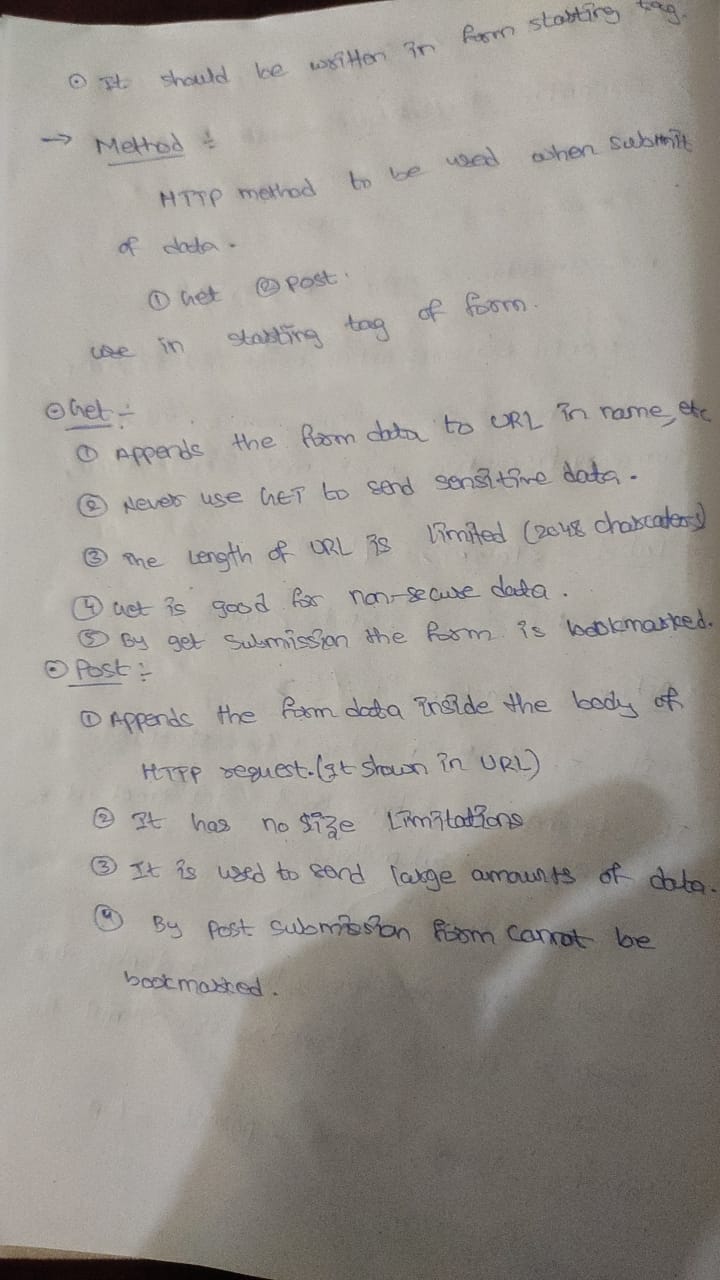 ⊙ It should be written in form starting tag.
→ Method ÷
HTTP method to be used when submit
of data.
① Get ② post.
use in starting tag of form.
⊙ Get ÷
① Appends the form data to URL in name, etc
② Never use GET to send sensitive data.
③ The Length of URL is limited (2048 characaters)
④ Get is good for non-secure data.
⑤ By get submission the form is bookmarked.
⊙ Post ÷
① Appends the form data inside the body of
HTTP request. (It shown in URL)
② It has no size Limitations
③ It is used to send large amounts of data.
④ By Post submission form cannot be
bookmarked.